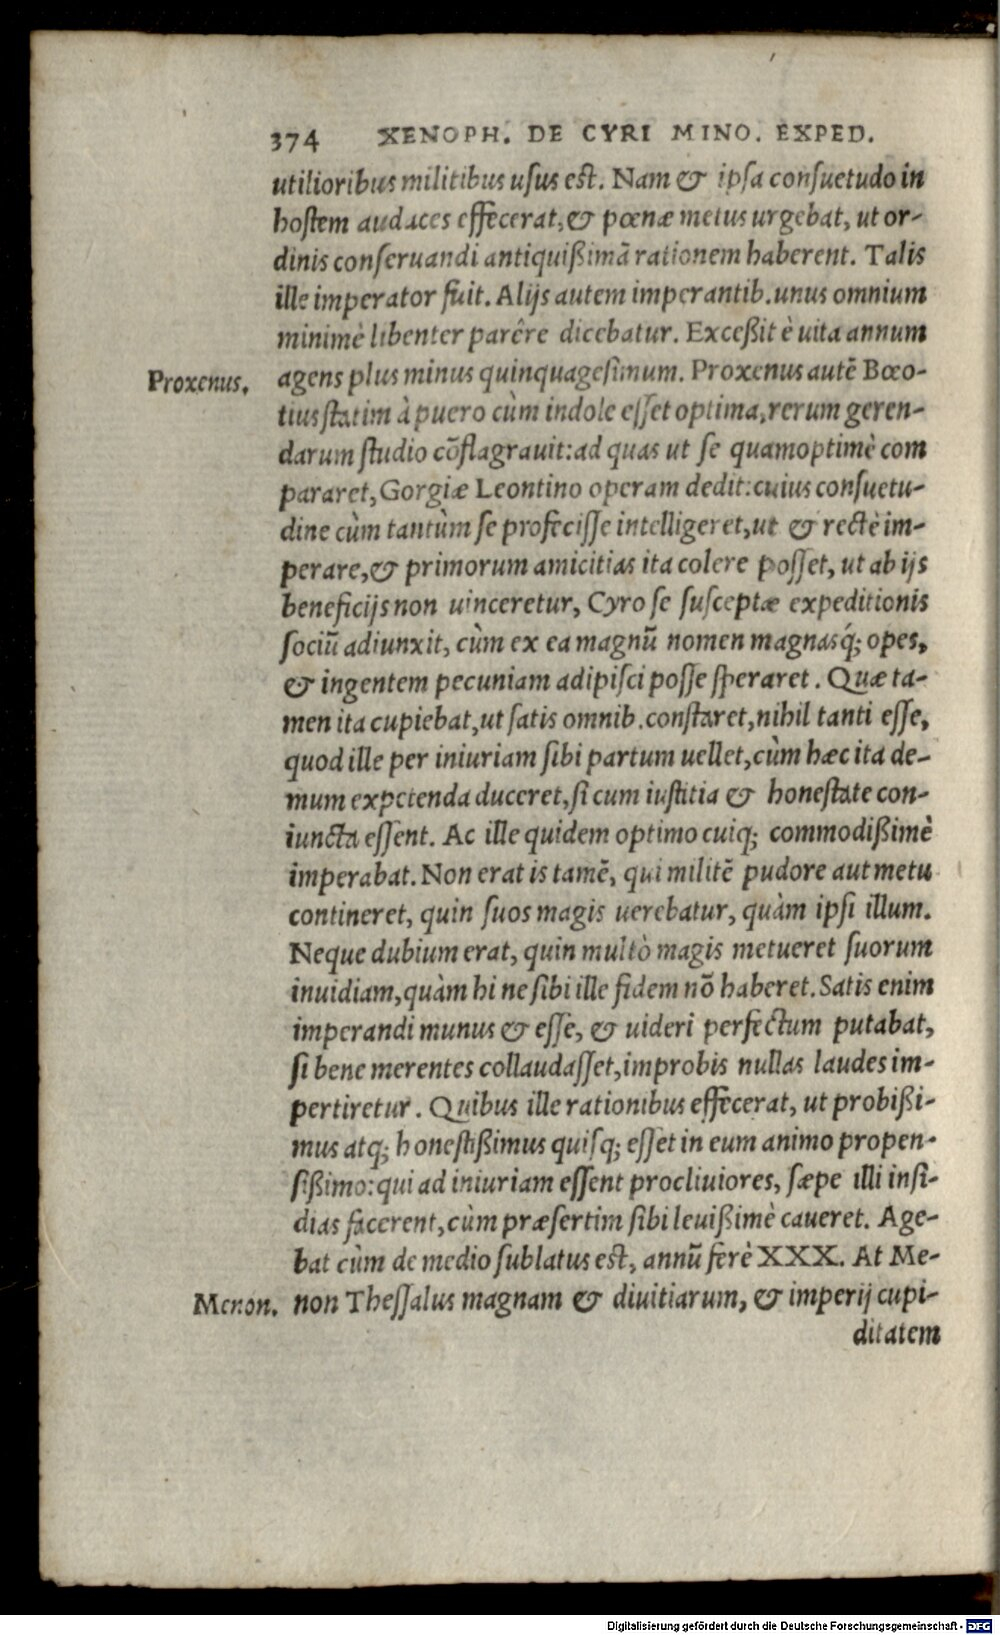 374 XENOPH. DE CYRI MINO. EXPED.
utilioribus militibus usus est. Nam & ipsa consuetudo in
hostem audaces effecerat, & pœnæ metus urgebat, ut or-
dinis conseruandi antiquißimā rationem haberent. Talis
ille imperator fuit. Alijs autem imperantib. unus omnium
minimè libenter parêre dicebatur. Exceßit è uita annum
Proxenus. agens plus minus quinquagesimum. Proxenus autē Bœo-
tius statim à puero cùm indole esset optima, rerum geren-
darum studio cōflagrauit: ad quas ut se quamoptimè com
pararet, Gorgiæ Leontino operam dedit: cuius consuetu-
dine cùm tantùm se profecisse intelligeret, ut & rectè im-
perare, & primorum amicitias ita colere posset, ut ab ijs
beneficijs non uinceretur, Cyro se susceptæ expeditionis
sociū adiunxit, cùm ex ea magnū nomen magnasq́; opes,
& ingentem pecuniam adipisci posse speraret. Quæ ta-
men ita cupiebat, ut satis omnib. constaret, nihil tanti esse,
quod ille per iniuriam sibi partum uellet, cùm hæc ita de-
mum expetenda duceret, si cum iustitia & honestate con-
iuncta essent. Ac ille quidem optimo cuiq; commodißimè
imperabat. Non erat is tamē, qui militē pudore aut metu
contineret, quin suos magis uerebatur, quàm ipsi illum.
Neque dubium erat, quin multò magis metueret suorum
inuidiam, quàm hi ne sibi ille fidem nō haberet. Satis enim
imperandi munus & esse, & uideri perfectum putabat,
si bene merentes collaudasset, improbis nullas laudes im-
pertiretur. Quibus ille rationibus effecerat, ut probißi-
mus atq; honestißimus quisq; esset in eum animo propen-
sißimo: qui ad iniuriam essent procliuiores, sæpe illi insi-
dias facerent, cùm præsertim sibi leuißimè caueret. Age-
bat cùm de medio sublatus est, annū ferè XXX. At Me-
Menon. non Thessalus magnam & diuitiarum, & imperij cupi-
ditatem
Digitalisierung gefördert durch die Deutsche Forschungsgemeinschaft - DFG